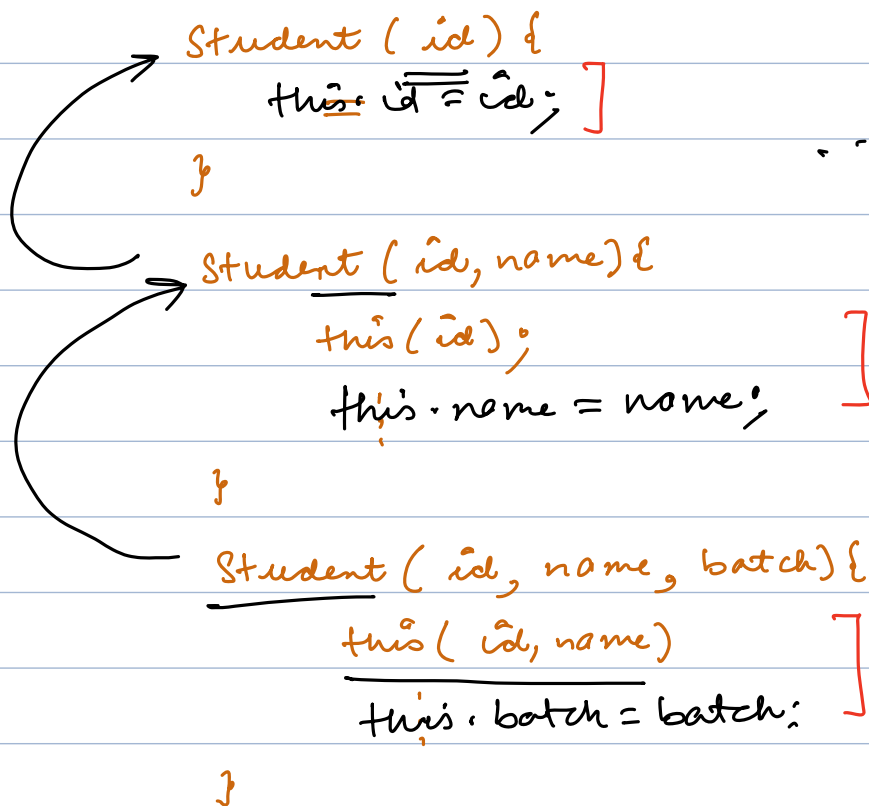 Student ( id ) {
this. id = id;
}
Student ( id, name) {
this ( id ) ;
this . name = name;
}
Student ( id, name, batch) {
this ( id, name)
this . batch = batch;
}